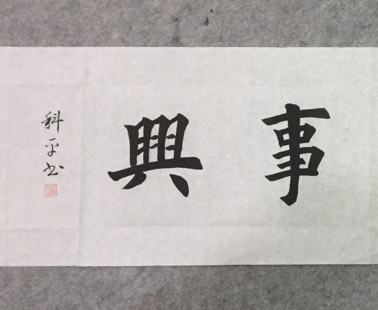 事興
科平书